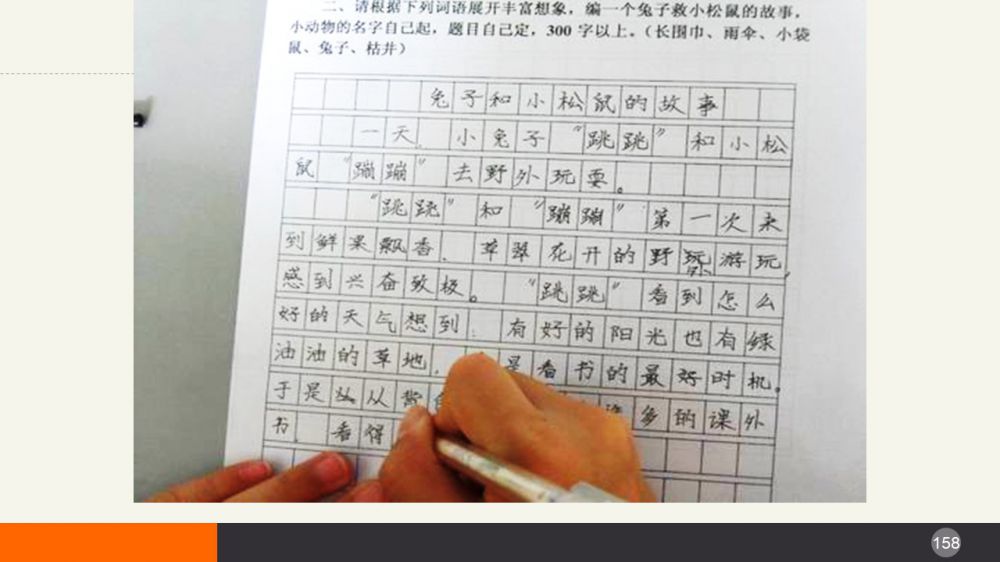 二、请根据下列词语展开丰富想象，编一个兔子救小松鼠的故事，
小动物的名字自己起，题目自己定，300 字以上。（长围巾、雨伞、小袋
鼠、兔子、枯井）
兔子和小松鼠的故事
一天，小兔子“跳跳”和小松
鼠“蹦蹦”去野外玩耍。
“跳跳”和“蹦蹦”第一次来
到鲜果飘香、草翠花开的野外游玩，
感到兴奋致极。“跳跳”看到怎么
好的天气想到：有好的阳光也有绿
油油的草地，是看书的最好时机。
于是从背多的课外
书，看得
158